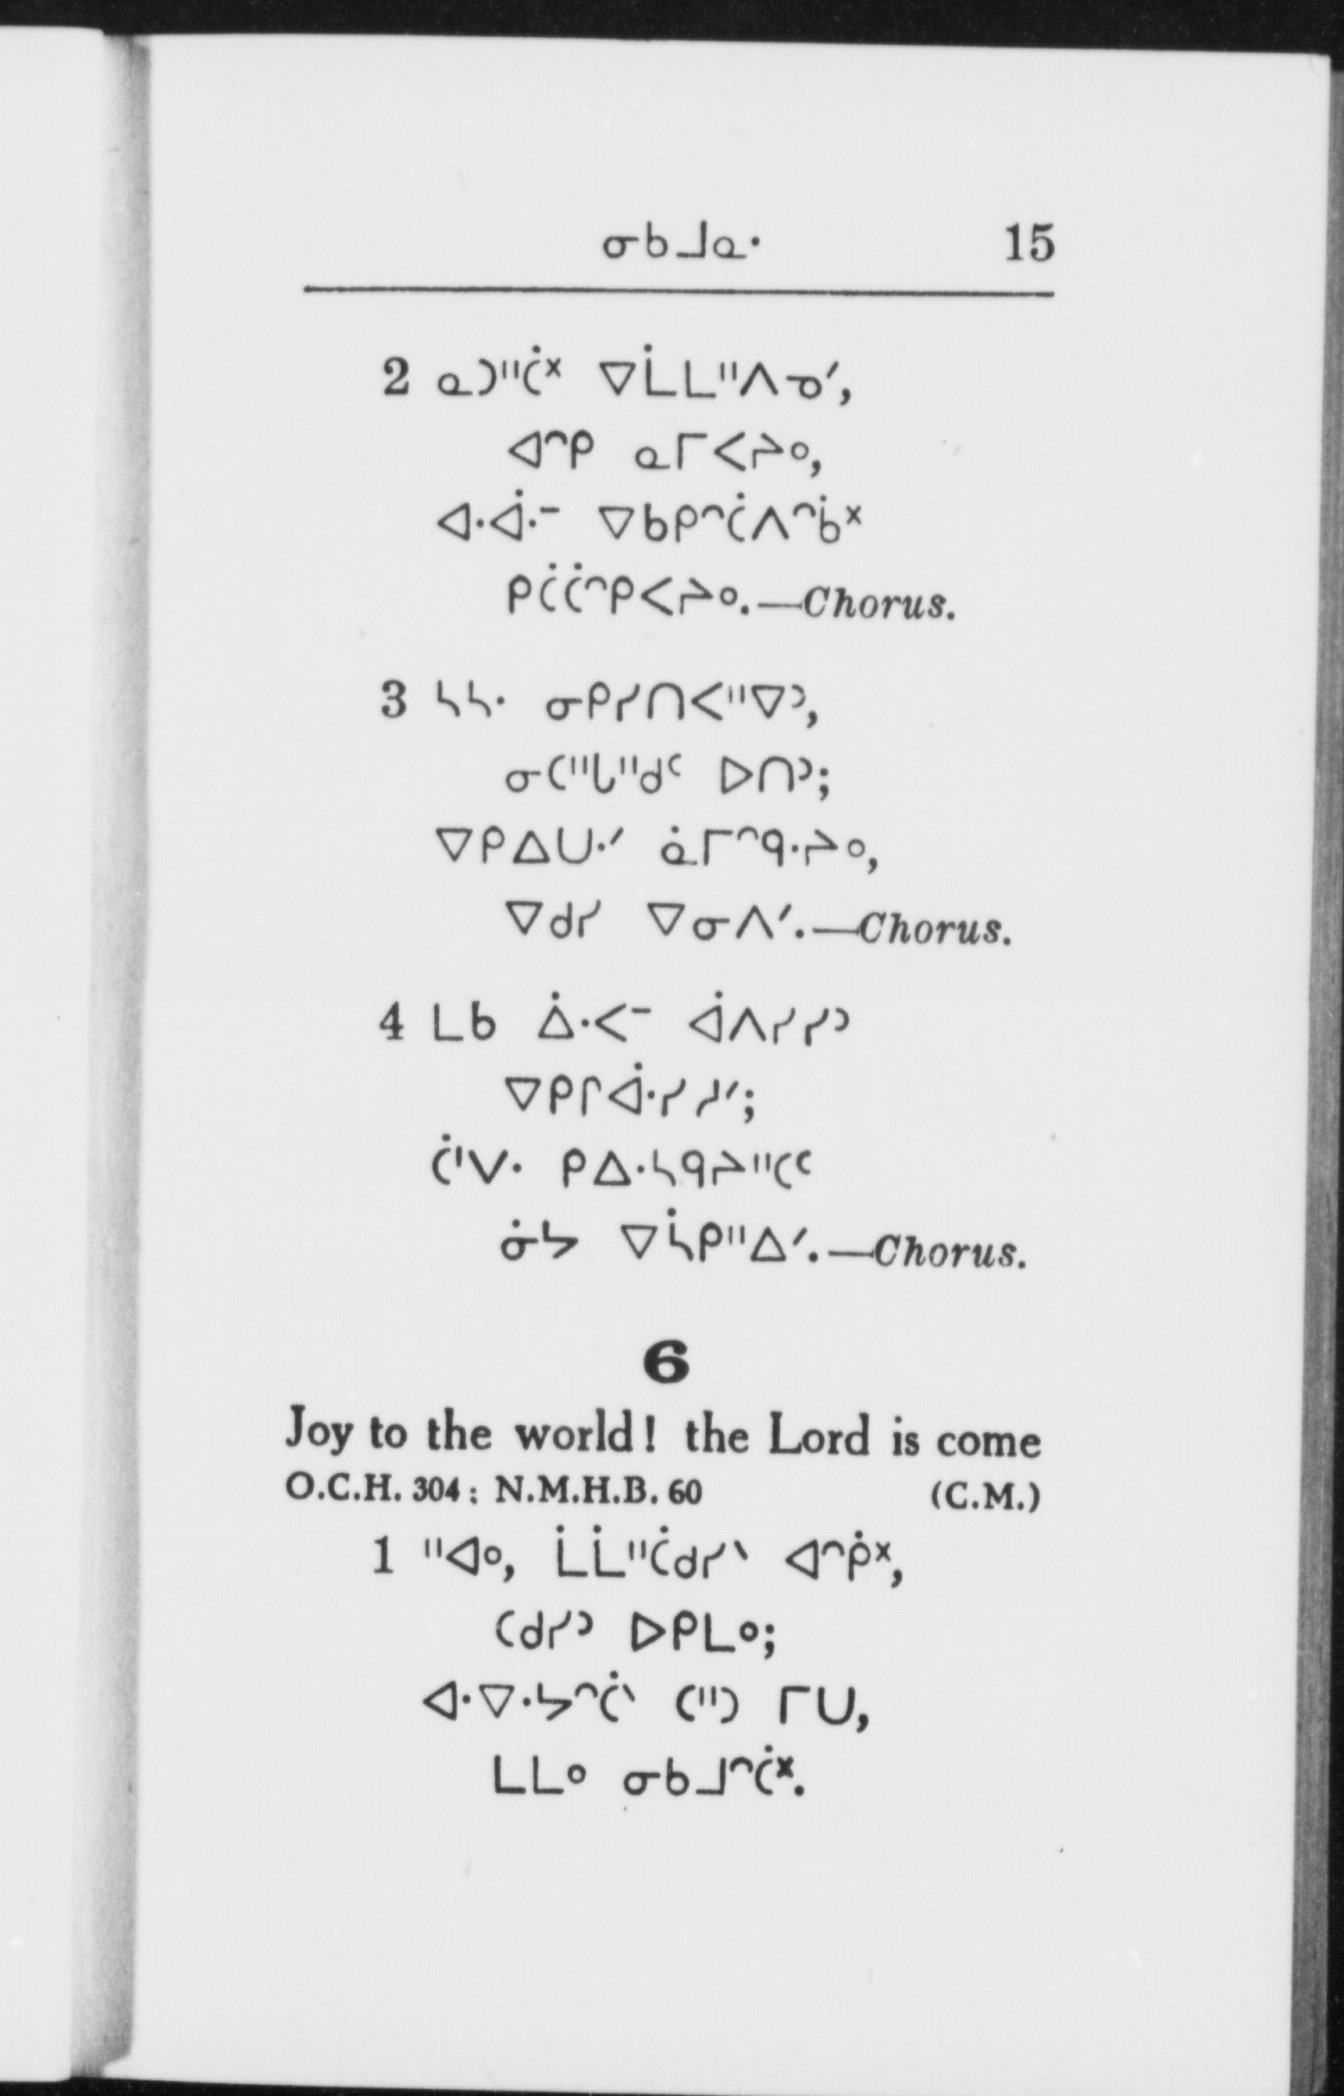 ᓂᑲᒧᓇᐧ 15
2 ᓇᑐᐦᑖᕽ ᐁᒫᒪᐦᐱᓀᐟ,
ᐊᐢᑭ ᓇᒥᐸᔨᐤ,
ᐊᐧᐋᐧᐨ ᐁᑲᑭᐢᑖᐱᐢᑳᕽ
ᑭᑖᑖᐢᑭᐸᔨᐤ.—Chorus.
3 ᓴᓴᐧ ᓂᑭᓯᑎᐸᐦᐁᐣ,
ᓂᑕᐦᒐᐦᑯᐨ ᐅᑎᐣ;
ᐁᑭᐃᑌᐧᐟ ᓈᒥᐢᑫᐧᔨᐤ,
ᐁᑯᓯ ᐁᓂᐱᐟ.—Chorus.
4 ᒪᑲ ᐄᐧᐸᐨ ᐋᐱᓯᓯᐣ
ᐁᑭᒋᐋᐧᓯᓱᐟ;
ᑖᑊᐯᐧ ᑭᐃᐧᓴᑫᔨᐦᑕᑦ
ᓃᔭ ᐁᓵᑭᐦᐃᐟ.—Chorus.
6
Joy to the world! the Lord is come
O.C.H. 304: N.M.H.B. 60 (C.M.)
1 ᐦᐊᐤ, ᒫᒫᐦᑖᑯᓯᐠ ᐊᐢᑮᕽ,
ᑕᑯᓯᐣ ᐅᑭᒪᐤ;
ᐊᐧᐁᐧᔭᐢᑖᐠ ᑕᐦᑐ ᒥᑌ,
ᒪᒪᐤ ᓂᑲᒧᐢᑖᕽ.